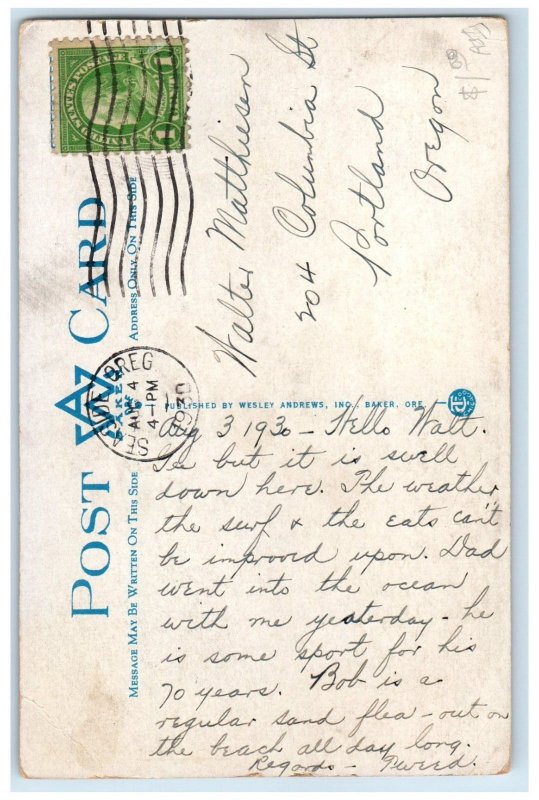 $1.00
UNITED STATES POSTAGE
1 1
SEASIDE OREG
AUG 4
4-PM
1930
POST CARD
BAKER
ADDRESS ONLY ON THIS SIDE
MESSAGE MAY BE WRITTEN ON THIS SIDE
PUBLISHED BY WESLEY ANDREWS, INC., BAKER, ORE
Walter Matthiesen
204 Columbia St
Portland
Oregon
Aug 3 1930 - Hello Walt.
Gee but it is swell
down here. The weather
the surf & the eats can't
be improved upon. Dad
went into the ocean
with me yesterday - he
is some sport for his
70 years. Bob is a
regular sand flea - out on
the beach all day long.
Regards - Tweed.